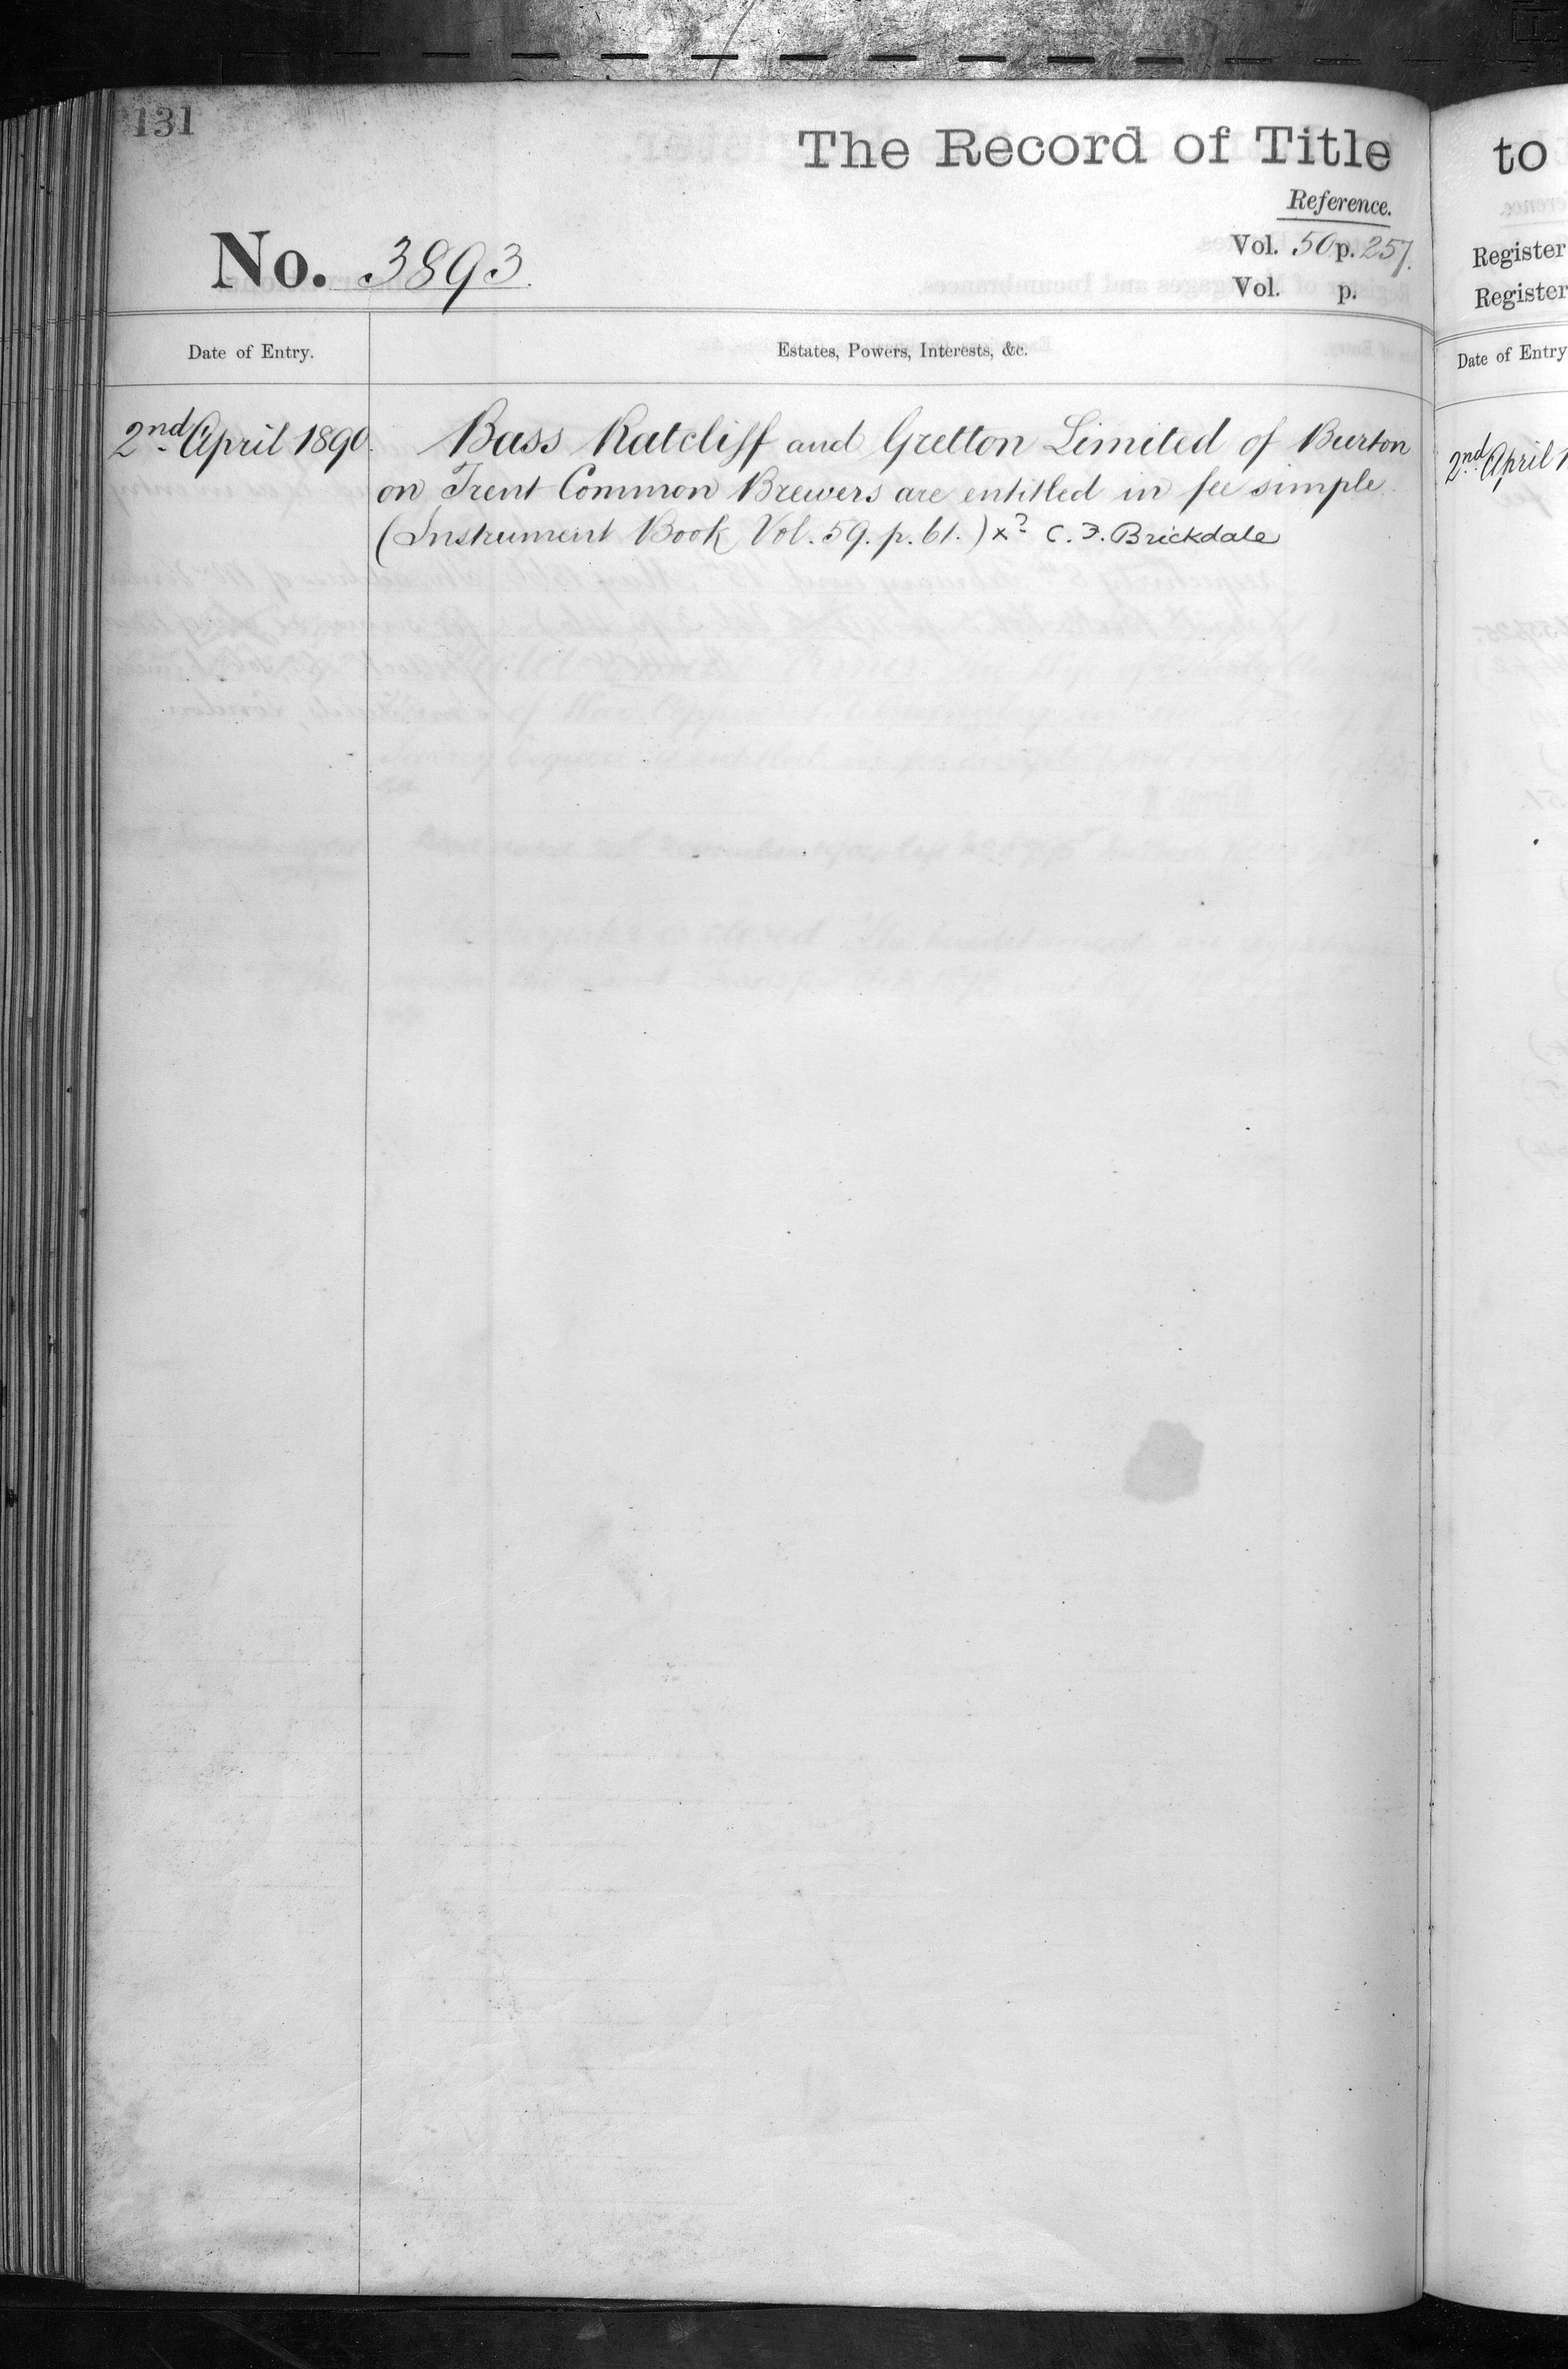 131
The Record of Title
Reference.
No. 3893.
Vol. 50 p. 257.
Vol. p.
Date of Entry.
Estates, Powers, Interests, &c.
2nd April 1890.
Bass Ratcliff and Gretton Limited of Burton
on Trent Common Brewers are entitled in fee simple
(Instrument Book Vol. 59. p. 61.) x? C. F. Brickdale
to
Register
Register
Date of Entry
2nd April 1